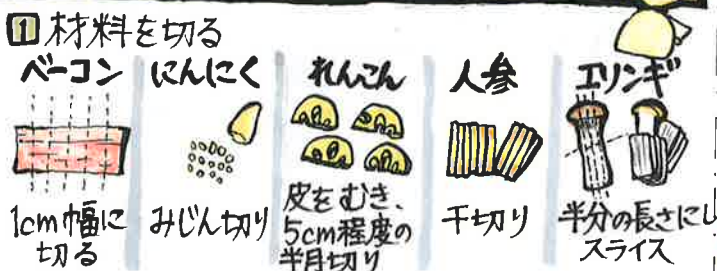 1 材料を切る
ベーコン
1cm幅に
切る
にんにく
みじん切り
れんこん
皮をむき、
5cm程度の
半月切り
人参
千切り
エリンギ
半分の長さにし
スライス